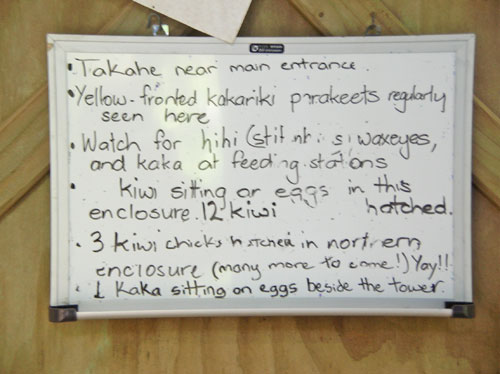 • Takahe near main entrance.
• Yellow-fronted kakariki parakeets regularly
seen here
• Watch for hihi (stit waxeyes,
and kaka at feeding stations
• kiwi sitting on eggs in this
enclosure. 12 kiwi hatched.
• 3 kiwi chicks hatched in northern
enclosure (many more to come!) Yay!!
• 1 Kaka sitting on eggs beside the tower.